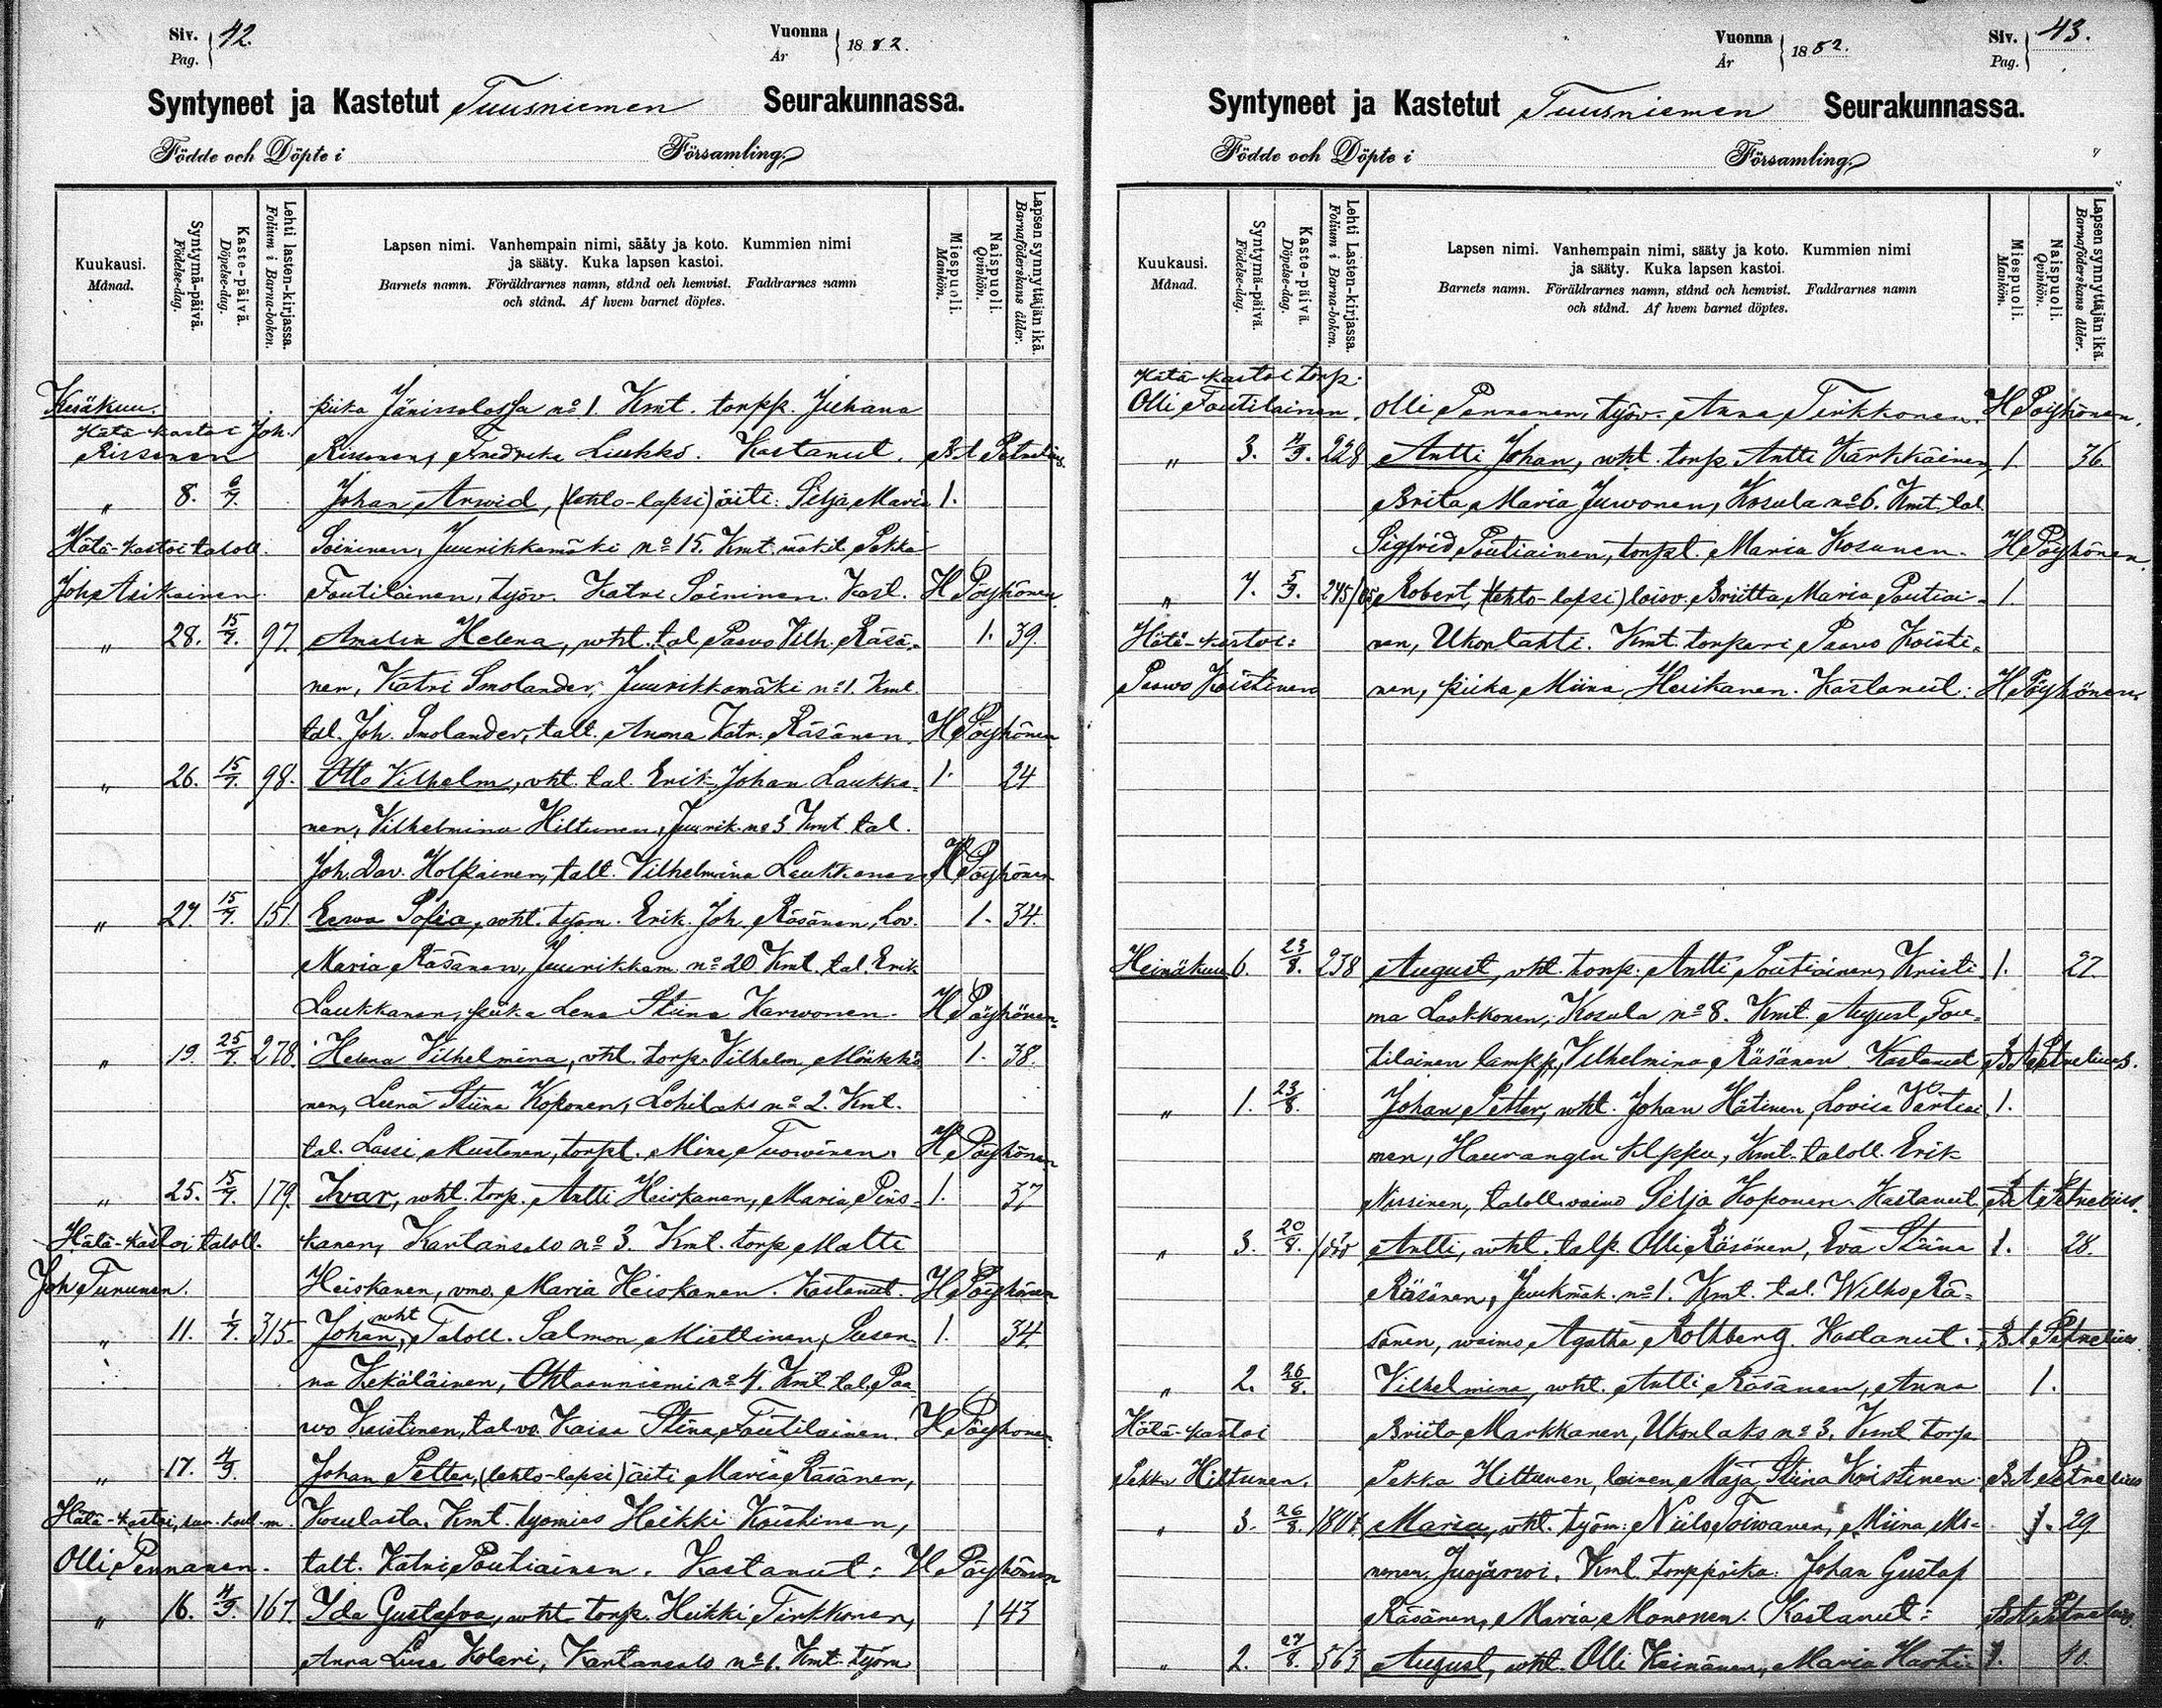 Siv. Pag. 42.
Vuonna År 1882.
Syntyneet ja Kastetut Tuusniemen Seurakunnassa.
Födde och Döpte i Församling.
Kuukausi. Månad.
Syntymä-päivä. Födelse-dag.
Kaste-päivä. Döpelse-dag.
Lehti lasten-kirjassa. Folium i Barna-boken.
Lapsen nimi. Vanhempain nimi, sääty ja koto. Kummien nimi
ja sääty. Kuka lapsen kastoi.
Barnets namn. Föräldrarnes namn, stånd och hemvist. Faddrarnes namn
och stånd. Af hvem barnet döptes.
Miespuoli. Mankön.
Naispuoli. Qvinkön.
Lapsen synnyttäjän ikä. Barnaföderskans ålder.
Kesäkuu. piika Jänissalossa no 1. Kmt. torpp. Juhana
Hätä-kastoi Joh.
Rissanen Rissanen, Fredrika Liukko. Kastanut. B A Petrelius.
" 8. 6/7. Johan Arwid, (lehto-lapsi) äiti: Silja Maria 1.
Hätä-kastoi taloll. Soininen, Juurikkamäki no 15. Kmt. mäkit. Pekka
Joh. Asikainen. Toutilainen, työv. Katri Soininen. Kast. H Pöyhönen.
" 28. 15/7. 97. Amalia Helena, wht. tal. Paavo Vilh. Räsä- 1. 39.
nen, Katri Smolander, Juurikkamäki no 1. Kmt.
tal. Joh. Smolander, talt. Anna Katr. Räsänen. H Pöyhönen
" 26. 15/7. 98. Otto Vilhelm, vht. tal. Erik Johan Laukka- 1. 24
nen, Vilhelmina Hiltunen, Juurik. no 3 Kmt. tal.
Joh. Dav. Holpainen, talt. Vilhelmina Laukkanen H Pöyhönen
" 27. 15/7. 151. Eewa Sofia, wht. työm. Erik Joh. Räsänen, Lov. 1. 34.
Maria Räsänen, Juurikkam. no 20 Kmt. tal. Erik
Laukkanen, piika Lena Stiina Karwonen. H Pöyhönen.
" 19. 25/7. 278. Helena Vilhelmina, vht. torp. Vilhelm Mönkkö- 1. 38.
nen, Leena Stiina Koponen, Lohilaks no 2. Kmt.
tal. Lassi Mustonen, torpt. Mina Tuowinen. H Pöyhönen
" 25. 15/7. 179. Ivar, wht. torp. Antti Heiskanen, Maria Pirs- 1. 37
Hätä-kastoi taloll. kanen, Kartansalo no 3. Kmt. torp. Matti
Joh. Tununen. Heiskanen, vmo. Maria Heiskanen. Kastanut. H Pöyhönen
" 11. 1/7. 315. Johan, wht Taloll. Salmon Miettinen, Susan- 1. 34.
na Kekäläinen, Ohtaanniemi no 4. Kmt. tal. Paa-
wo Koistinen, tal. vo. Kaisa Stina Toutilainen. H Pöyhönen.
" 17. 4/9. Johan Petter, (lehto-lapsi) äiti Maria Räsänen,
Hätä-kastoi, Kosulasta. Kmt. työmies Heikki Koistinen,
Olli Pennanen. talt. Katri Poutiainen. Kastanut: H Pöyhönen
" 16. 4/9. 167. Ida Gustafva, wht. torp. Heikki Tirkkonen, 1 43
Anna Liisa Kolari, Kartansalo no 1. Kmt. työm.
Vuonna År 1882.
Siv. Pag. 43.
Syntyneet ja Kastetut Tuusniemen Seurakunnassa.
Födde och Döpte i Församling.
Kuukausi. Månad.
Syntymä-päivä. Födelse-dag.
Kaste-päivä. Döpelse-dag.
Lehti Lasten-kirjassa. Folium i Barna-boken.
Lapsen nimi. Vanhempain nimi, sääty ja koto. Kummien nimi
ja sääty. Kuka lapsen kastoi.
Barnets namn. Föräldrarnes namn, stånd och hemvist. Faddrarnes namn
och stånd. Af hvem barnet döptes.
Miespuoli. Mankön.
Naispuoli. Qvinkön.
Lapsen synnyttäjän ikä. Barnaföderskans ålder.
Hätä-kastoi torp.
Olli Toutilainen. Olli Pennanen, työv. Anna Tirkkonen. H Pöyhönen.
" 3. 4/9. 228 Antti Johan, wht. torp. Antti Kärkkäinen, 1. 36.
Brita Maria Juwonen, Kosula no 6. Kmt. tal.
Sigfrid Poutiainen, torpt. Maria Kosunen. H Pöyhönen.
" 7. 5/9. 245/85 Robert, (lehto-lapsi) loisv. Briitta Maria Poutiai- 1.
Hätä-kastoi: nen, Ukonlahti. Kmt. torpari Paavo Koisti-
Paawo Koistinen nen, piika Miina Heiskanen. Kastanut: H Pöyhönen
Heinäkuu 6. 23/8. 238 August, vht. torp. Antti Poutiainen, Kristi- 1. 27.
na Laakkonen, Kosula no 8. Kmt. August Tou-
tilainen lampp., Vilhelmina Räsänen. Kastanut B A Petrelius.
" 1. 23/8. Johan Petter, wht. Johan Hätinen, Lovisa Vartiai- 1.
nen, Kmt. taloll. Erik
Nissinen, taloll. waimo Silja Koponen. Kastanut B A Petrelius.
" 3. 20/8. Antti, wht. talp. Olli Räsänen, Eva Stiina 1. 28.
Räsänen, Juukmäk. no 1. Kmt. tal. Wilho Rä-
sänen, waimo Agatha Rothberg. Kastanut. B A Petrelius
" 2. 26/8. Vilhelmina, wht. Antti Räsänen, Anna 1.
Hätä-kastoi Briita Markkanen, Ukonlaks no 3. Kmt torp.
Pekka Hiltunen. Pekka Hiltunen, loinen Maja Stiina Koistinen. B A Petrelius
" 3. 26/8. Maria, wht. työm. Niilo Toiwanen, Miina Mo- 1. 29.
nonen, Juojärwi. Kmt. torppoika. Johan Gustaf
Räsänen, Maria Mononen. Kastanut: B A Petrelius.
" 2. 27/8. 563 August, wht. Olli Keinänen, Maria Harti- 1. 40.